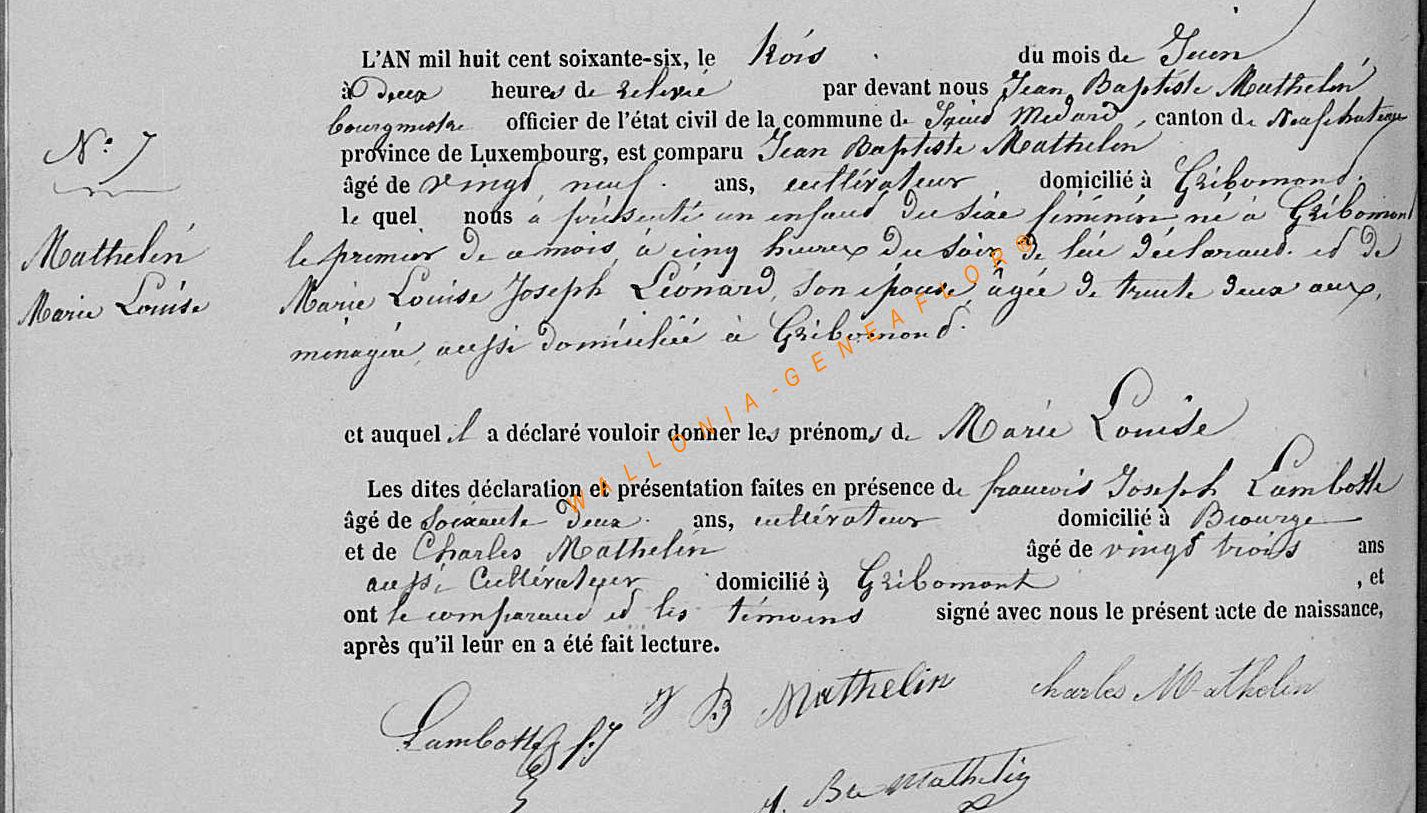 L'AN mil huit cent soixante-six, le trois du mois de Juin
à deux heures de relevée par devant nous Jean Baptiste Mathelin
bourgmestre officier de l'état civil de la commune de Saint Medard, canton de Neufchateau
N° 7
province de Luxembourg, est comparu Jean Baptiste Mathelin
âgé de vingt neuf ans, cultivateur, domicilié à Gribomont.
le quel nous a présenté un enfant du sexe féminin né à Gribomont
Mathelin
le premier de ce mois, à cinq heures du soir, de lui déclarant et de
Marie Louise
Marie Louise Joseph Léonard, son épouse, âgée de trente deux ans,
ménagère, aussi domiciliée à Gribomont.
et auquel il a déclaré vouloir donner les prénoms de Marie Louise
Les dites déclaration et présentation faites en présence de francois Joseph Lambotte
âgé de soixante deux ans, cultivateur domicilié à Biourge
et de Charles Mathelin âgé de vingt trois ans
aussi Cultivateur domicilié à Gribomont, et
ont le comparant et les témoins signé avec nous le présent acte de naissance,
après qu'il leur en a été fait lecture.
Lambotte f. J J B Mathelin charles Mathelin
J. Bte Mathelin
WALLONIA-GENEAFLOR®